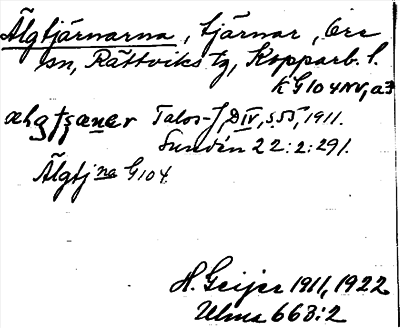 Älgtjärnarna, tjärnar, Ore
sn, Rättviks tg, Kopparb. l.
K G104NV, a7
ælgtʒæner Talos-J, DIV, s.55, 1911.
Sundén 22:2:291.
Älgtjna G104
H. Geijer 1911, 1922
Ulma 663:2